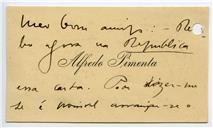 meu bom amigo: – Re-
bo agora na Republica
Alfredo Pimenta
essa carta. Pode dizer-me
se é possivel arranjar-se o